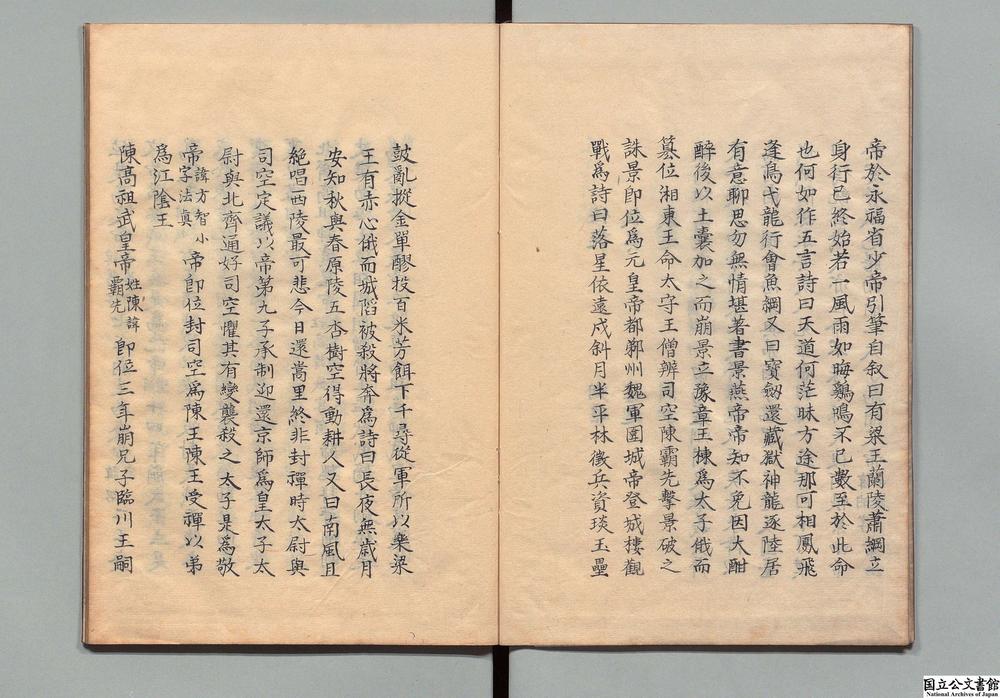 帝於永福省少帝引筆自叙曰有梁王蘭陵蕭綱立
身行已終始若一風雨如晦鷄鳴不已數至於此命
也何如作五言詩曰天道何茫昧方途那可相鳳飛
逢鳥弋龍行會魚綱又曰寶劔還藏獄神龍逐陸居
有意聊思勿無情堪著書景燕帝帝知不免因大酣
醉後以土囊加之而崩景立豫章王棟為太子俄而
簒位湘東王命太守王僧辨司空陳霸先擊景破之
誅景卽位爲元皇帝都鄴州魏軍圍城帝登城樓觀
戰爲詩曰落星依遠戍斜月半平林徵兵資琰玉壘
鼓亂摐金單醪投百米芳餌下千尋從軍所以樂梁
王有赤心俄而城陷被殺將奔爲詩曰長夜無歳月
安知秋與春原陵五杏樹空得動耕人又曰南風且
絶唱西陵最可悲今日還嵩里終非封禪時太尉與
司空定議以帝第九子承制迎還京師爲皇太子太
尉與北齊通好司空懼其有變襲殺之太子是爲敬
帝諱方智小字法真帝卽位封司空爲陳王陳王受禪以弟
爲江陰王
陳髙祖武皇帝姓陳諱霸先卽位三年崩兄子臨川王嗣
国立公文書館
National Archives of Japan